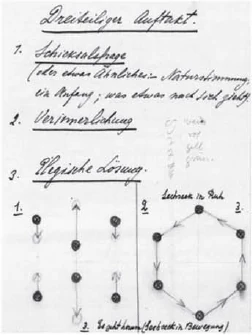 Dreiteiliger Auftakt.
1. Schicksalsfrage
(oder etwas Ähnliches: Naturstimmung,
ein Anfang; was etwas nach sich zieht)
2. Verinnerlichung
3. Elegische Lösung.
1. 2. Sechseck in Ruh 3.
3. Es geht herum (Sechseck in Bewegung)